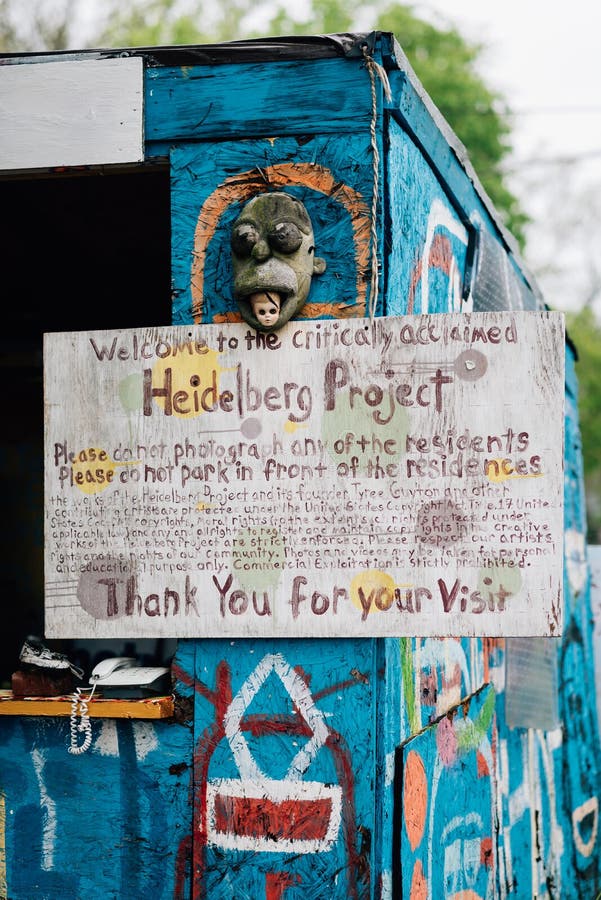 Welcome to the critically acclaimed
Heidelberg Project
Please do not photograph any of the residents
Please do not park in front of the residences
the works of the Heidelberg Project and its founder, Tyree Guyton and other
contributing artists are protected under the United States Copyright Act, Title 17 United
States Code. All copyrights, moral rights (to the extent such rights protected under
applicable law) and any and all rights to register and maintain copyrights in the Creative
works of the Heidelberg Project are strictly enforced. Please respect our artists
rights and the rights of our Community. Photos and videos may be taken for personal
and educational purpose only. Commercial Exploitation is strictly prohibited.
Thank You for your Visit